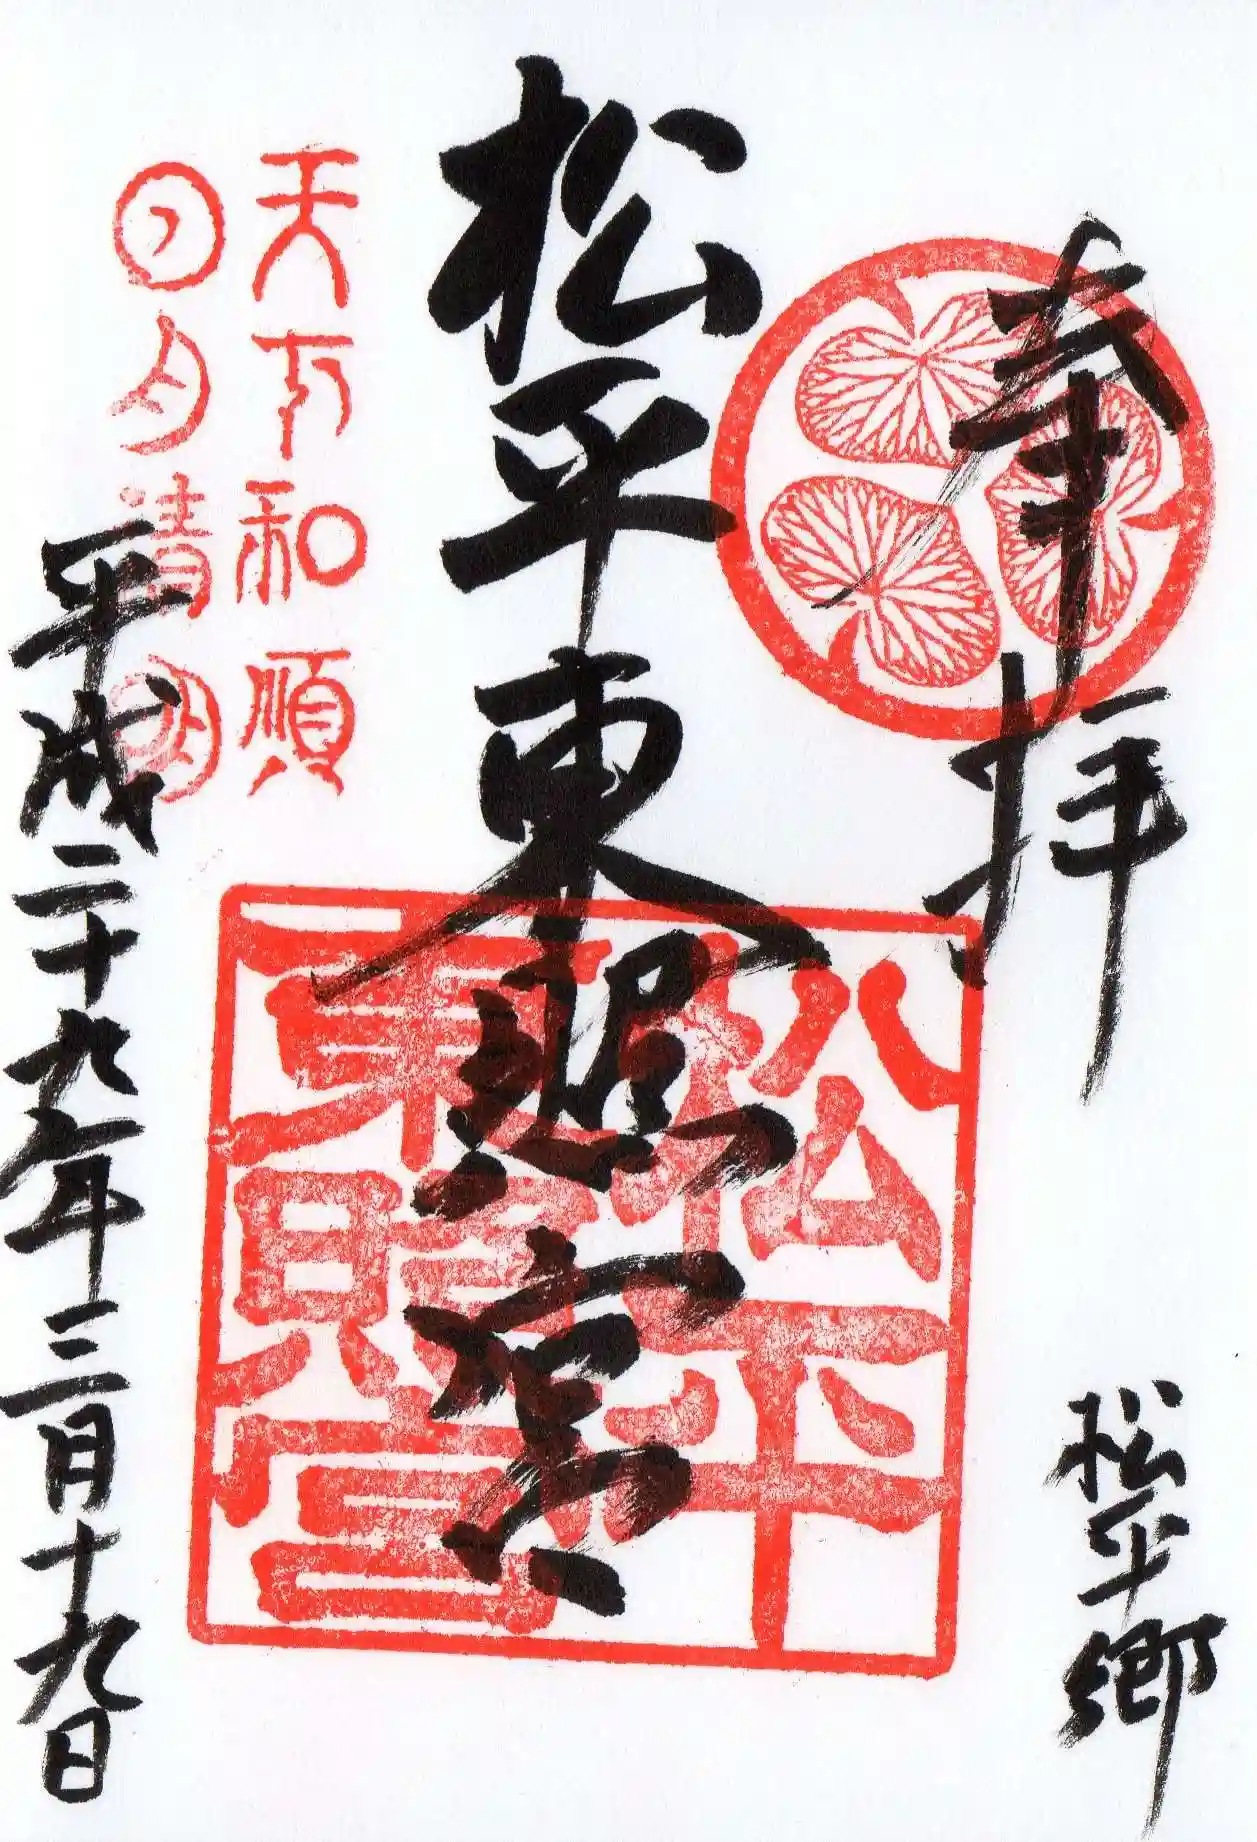 奉拝
松平郷
松平東照宮
松平
東照宮
天下和順
日月清明
平成二十九年三月十九日